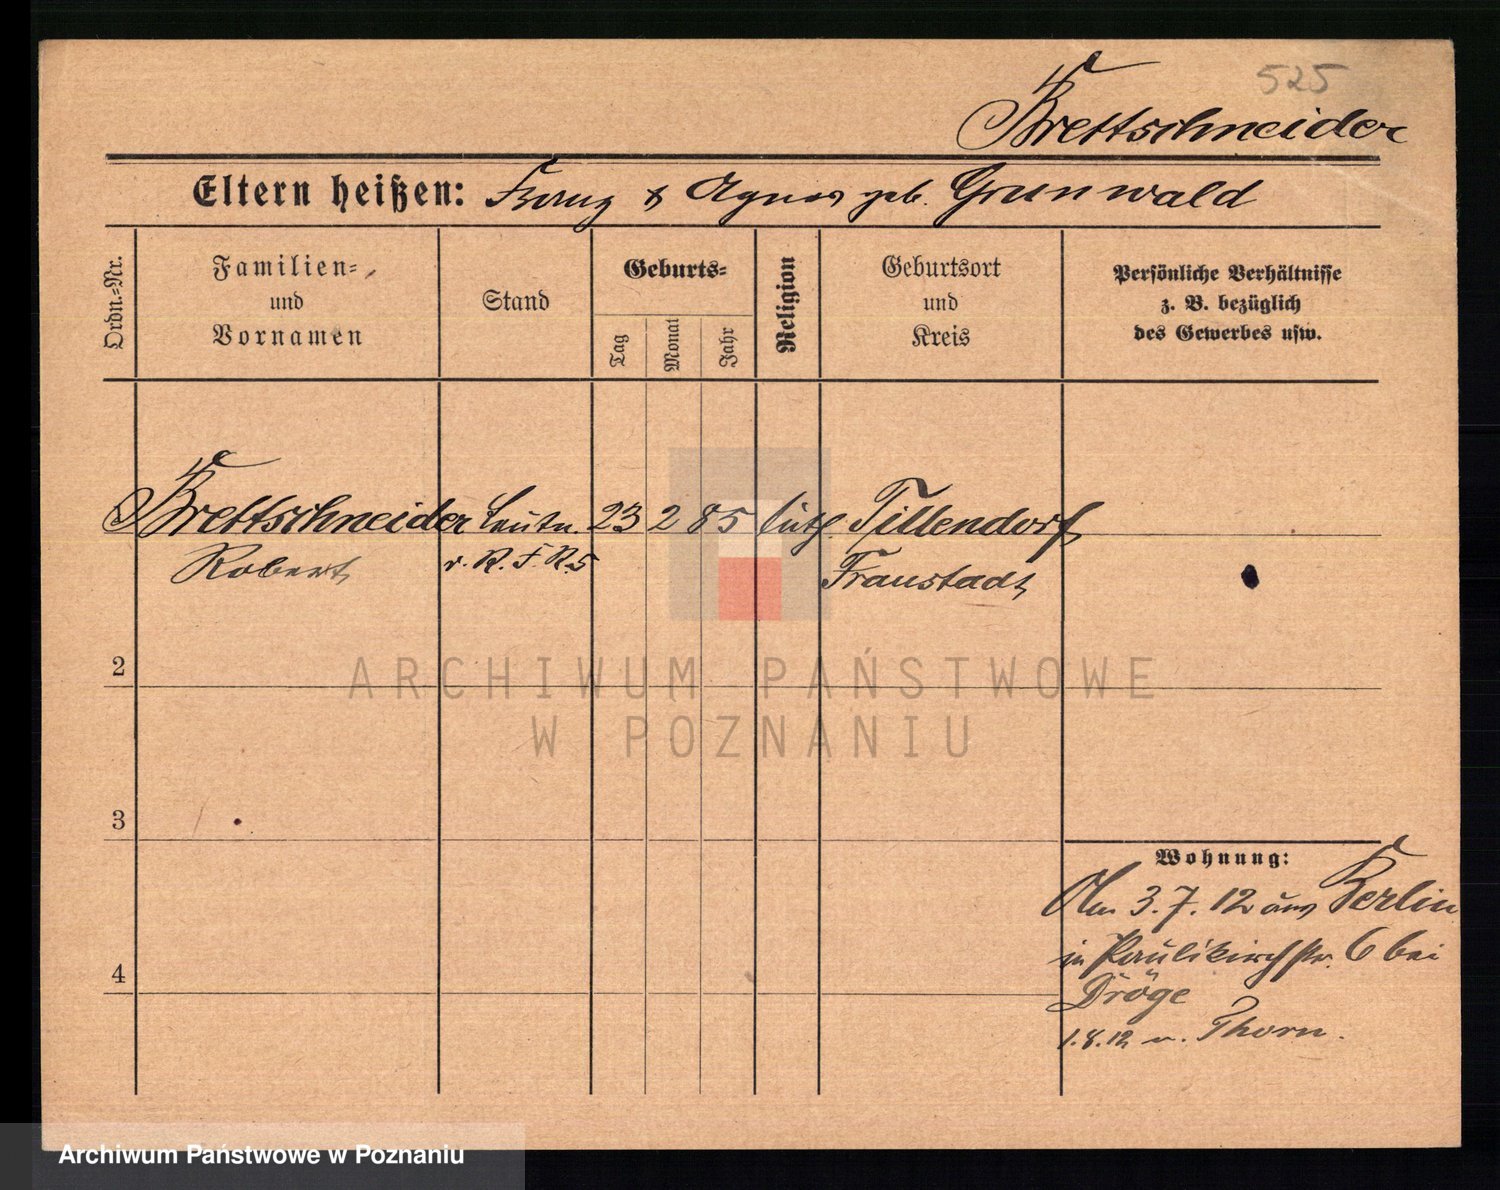 525
Brettschneider
Eltern heißen: Franz & Agnes geb. Grunwald
Ordn.-Nr.
Familien-
und
Vornamen
Stand
Geburts-
Tag
Monat
Jahr
Religion
Geburtsort
und
Kreis
Persönliche Verhältnisse
z. B. bezüglich
des Gewerbes usw.
Brettschneider Leutn. 23 2 85 luth. Tillendorf
Robert R. F. R. 5 Fraustadt
2
3
4
Wohnung:
Am 3.7.12 aus Berlin
in Paulikirchstr. 6 bei
Dröge
1.8.12 n. Thorn.
ARCHIWUM PAŃSTWOWE
W POZNANIU
Archiwum Państwowe w Poznaniu